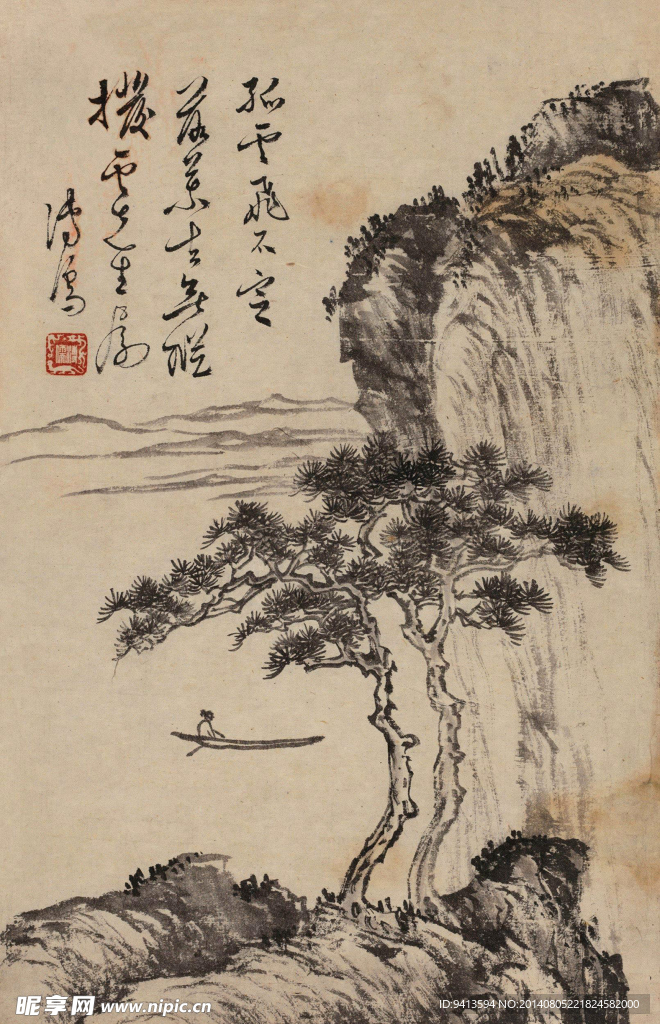 孤云飛不定
落葉去無蹤
撥雲先生属
溥儒
昵享网 www.nipic.cn
ID:9413594 NO:20140805221824582000